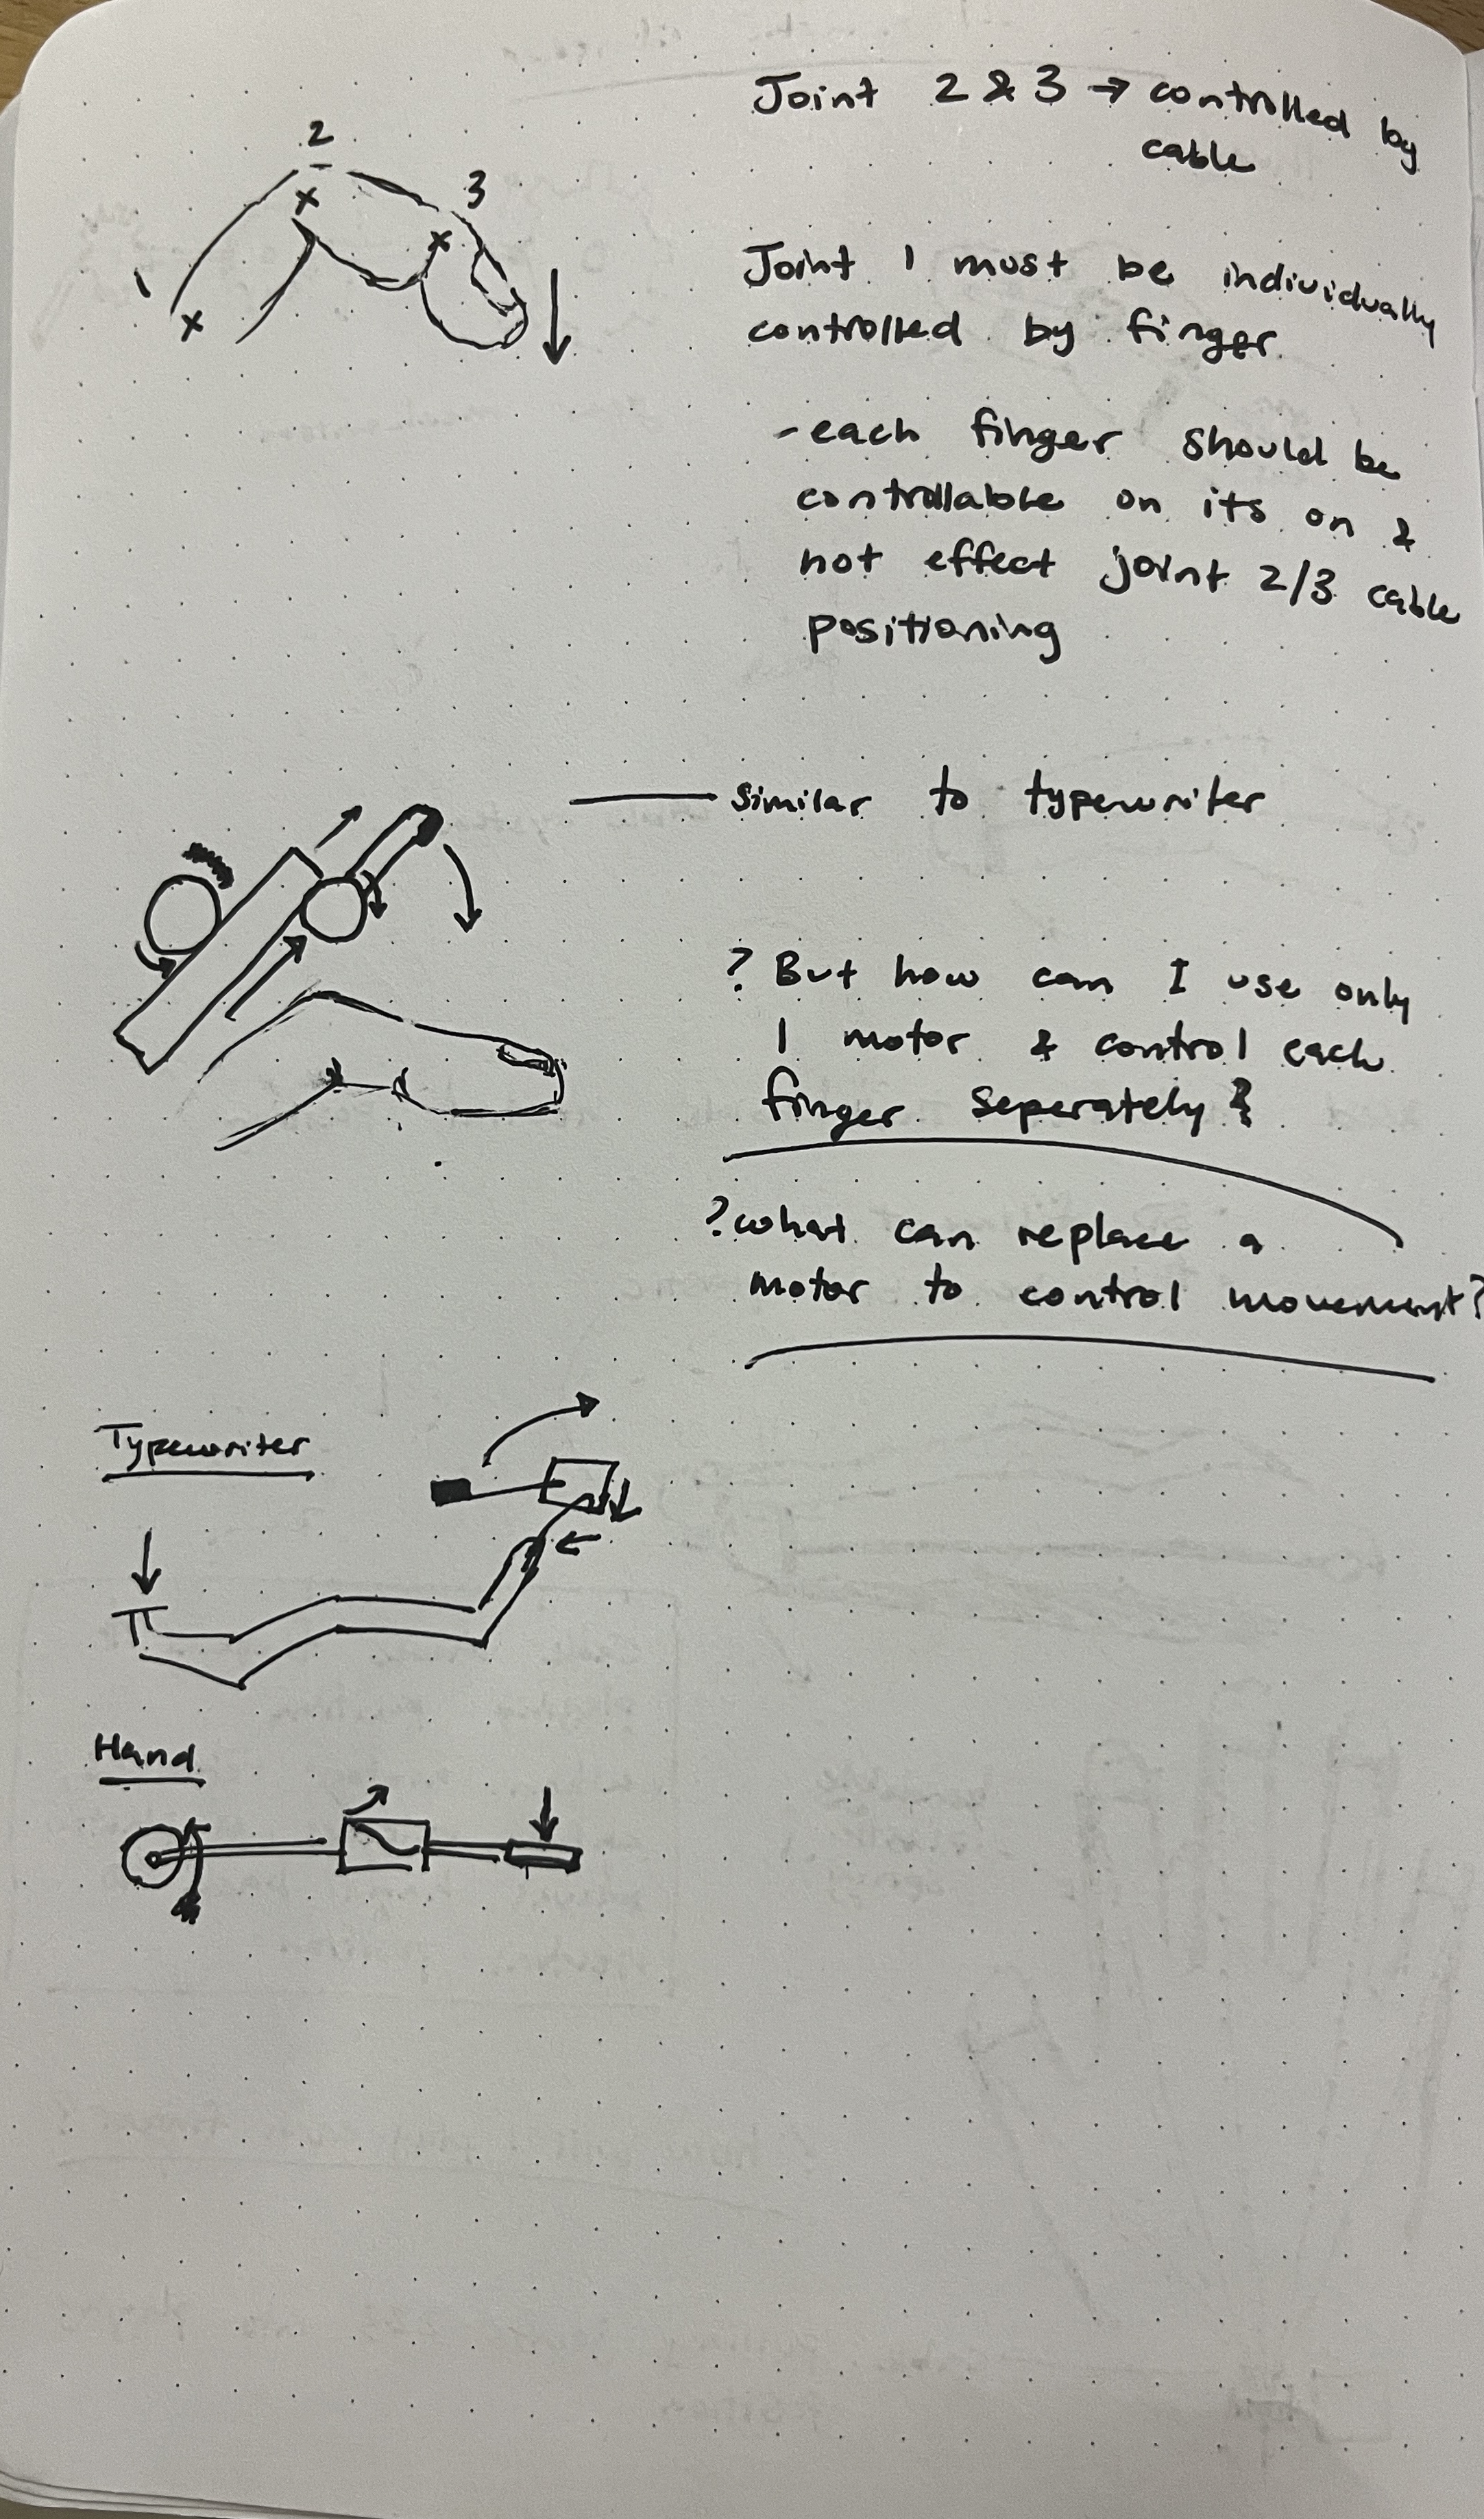 Joint 2 & 3 → controlled by
cable
2
3
1
Joint 1 must be individually
controlled by finger
- each finger should be
controllable on its on &
not effect joint 2/3 cable
positioning
Similar to typewriter
? But how can I use only
1 motor & control each
finger seperately?
? what can replace a
motor to control movement?
Typewriter
Hand